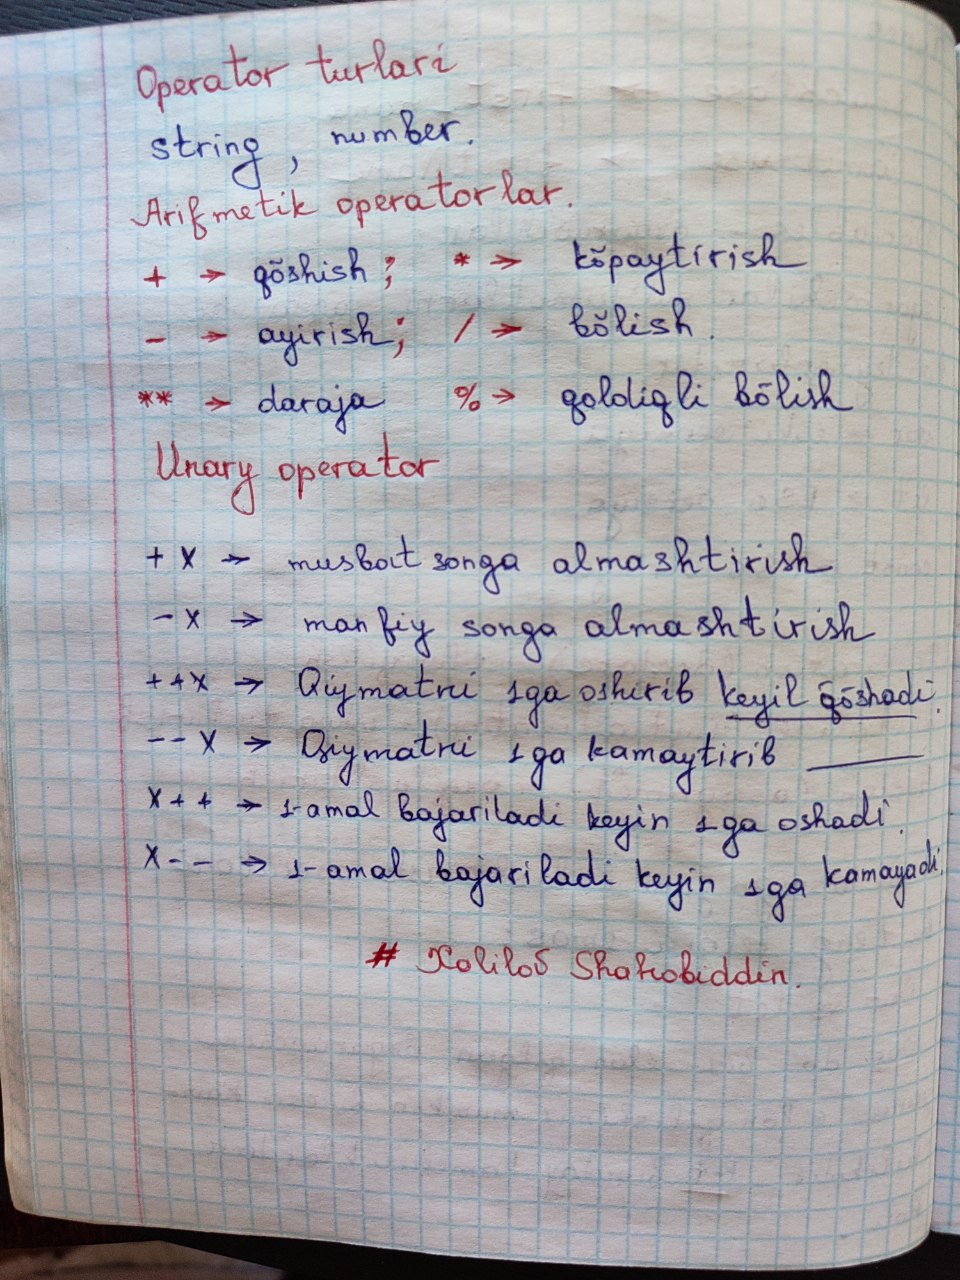 Operator turlari
string, number.
Arifmetik operatorlar.
+ → qõshish; * → kõpaytirish
- → ayirish; / → bõlish.
** → daraja % → qoldiqli bõlish
Unary operator
+ x → musbat songa almashtirish
- x → manfiy songa almashtirish
++x → Qiymatni 1ga oshirib keyil qõshadi.
-- x → Qiymatni 1ga kamaytirib ____
x++ → 1-amal bajariladi keyin 1ga oshadi.
x-- → 1-amal bajariladi keyin 1ga kamayadi.
# Xolilov Shahobiddin.